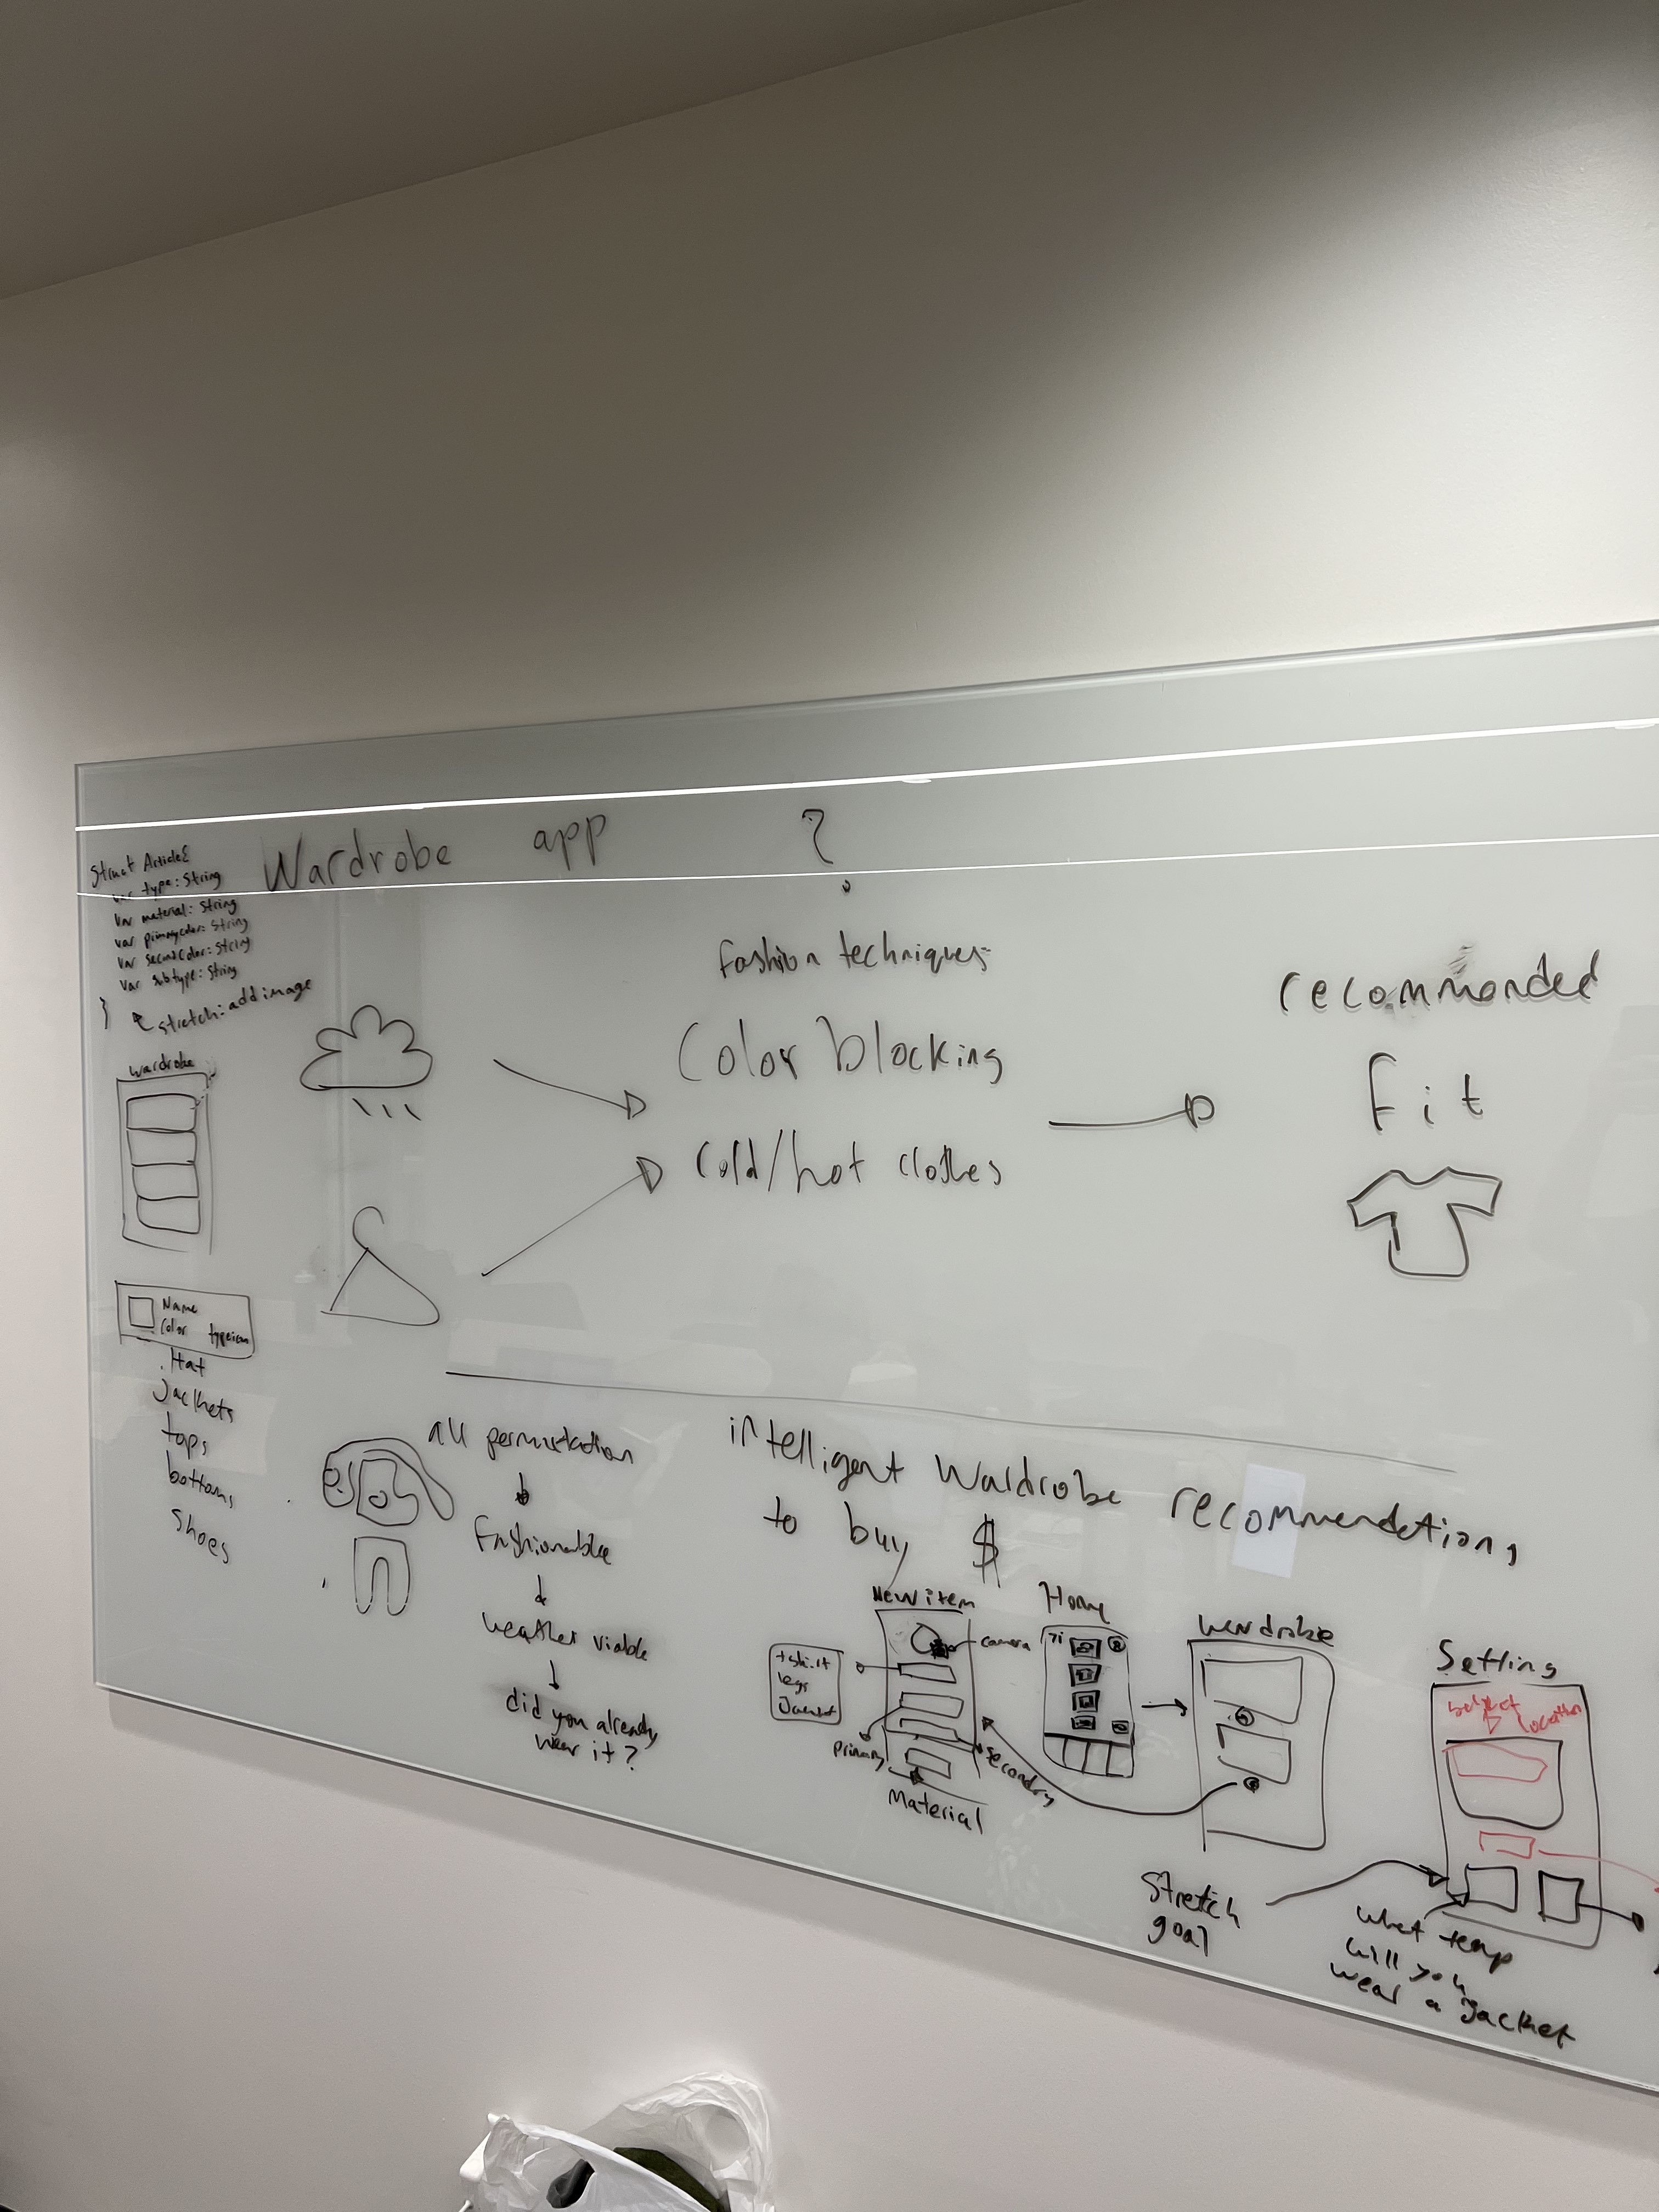 Wardrobe app ?
Struct Article {
var type: String
var material: String
var primaryColor: String
var secondColor: String
var subtype: String
}
stretch: add image
wardrobe
Name
Color typeicon
Hat
Jackets
tops
bottoms
shoes
Fashion techniques
Color blocking
Cold/hot clothes
recommended
Fit
all permutation
Fashionable
weather viable
did you already
wear it?
intelligent Wardrobe recommendations
to buy $
New item
camera
tshirt
legs
Jacket
Primary
Secondary
Material
Home
71
Wardrobe
Setting
Select
location
Stretch
goal
What temp
will you
wear a jacket